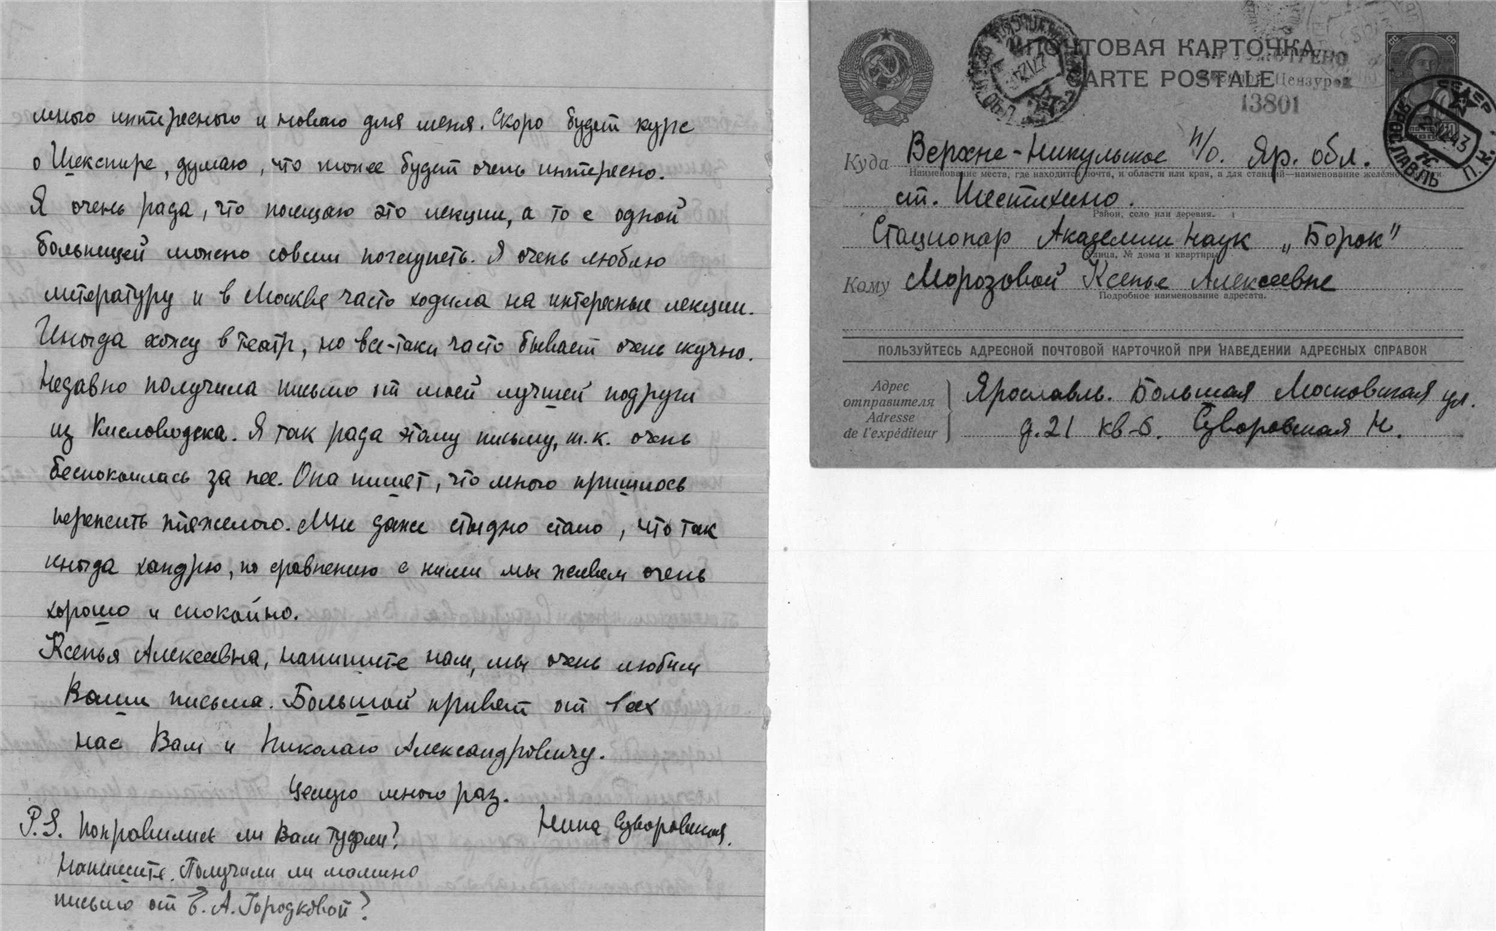 много интересного и нового для меня. Скоро будет курс
о Шекспире, думаю, что тоже будет очень интересно.
Я очень рада, что посещаю это лекции, а то с одной
больницей можно совсем поглупеть. Я очень люблю
литературу и в Москве часто ходила на интересные лекции.
Иногда хожу в театр, но все-таки часто бывает очень скучно.
Недавно получила письмо от моей лучшей подруги
из Кисловодска. Я так рада этому письму, т.к. очень
беспокоилась за нее. Она пишет, что много пришлось
пережить тяжелого. Мне даже стыдно стало, что так
иногда хандрю, по сравнению с ними мы живем очень
хорошо и спокойно.
Ксенья Алексеевна, напишите нам, мы очень любим
Ваши письма. Большой привет от всех
нас Вам и Николаю Александровичу.
Целую много раз.
Нина Суворовская.
P.S. Понравились ли Вам туфли?
Напишите. Получили ли мамино
письмо от А. Городковой?
ПОЧТОВАЯ КАРТОЧКА
CARTE POSTALE
13801
Куда Верхне-Никульское п/о. Яр. обл.
Наименование места, где находится почта, и области или края, а для станций—наименование
ст. Шестихино.
Район, село или деревня.
Стационар Академии Наук „Борок"
Улица, № дома и квартиры
Кому Морозовой Ксенье Алексеевне
Подробное наименование адресата.
ПОЛЬЗУЙТЕСЬ АДРЕСНОЙ ПОЧТОВОЙ КАРТОЧКОЙ ПРИ НАВЕДЕНИИ АДРЕСНЫХ СПРАВОК
Адрес
отправителя
Adresse
de l'expéditeur
Ярославль. Большая Московская ул.
д.21 кв-6. Суворовская Н.